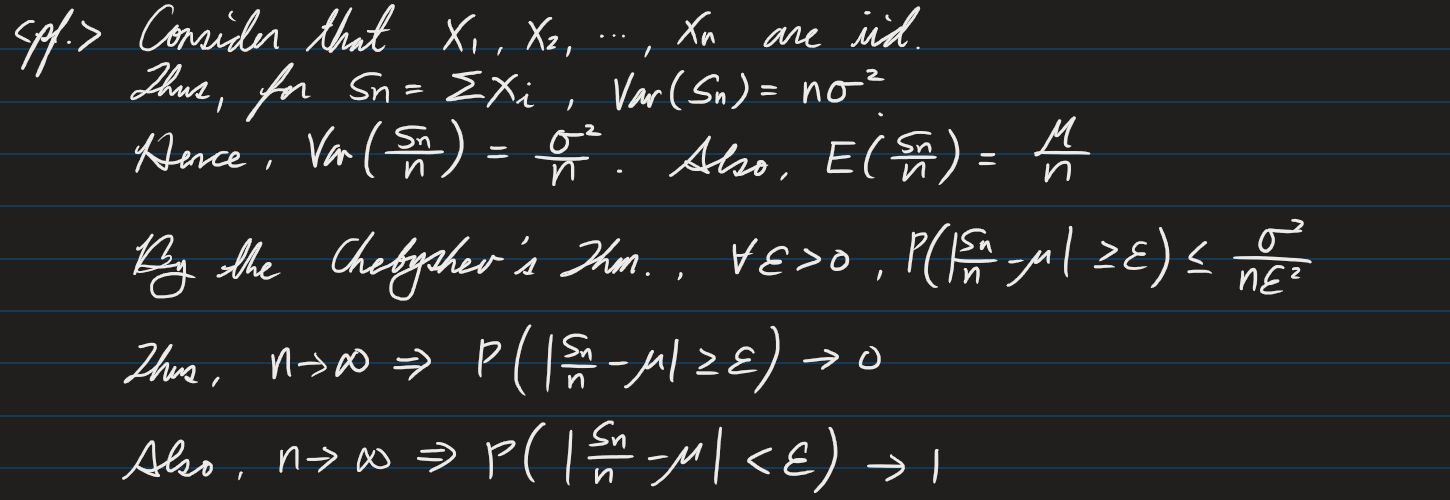 <pf.> Consider that X₁, X₂, ⋯, Xn are iid.
Thus, for Sn = ΣXi, Var(Sn) = nσ²
Hence, Var(Sn/n) = σ²/n. Also, E(Sn/n) = μ/n
By the Chebyshev's Thm., ∀ε>0, P(|Sn/n - μ| ≥ ε) ≤ σ²/nε²
Thus, n→∞ ⇒ P(|Sn/n - μ| ≥ ε) → 0
Also, n→∞ ⇒ P(|Sn/n - μ| < ε) → 1